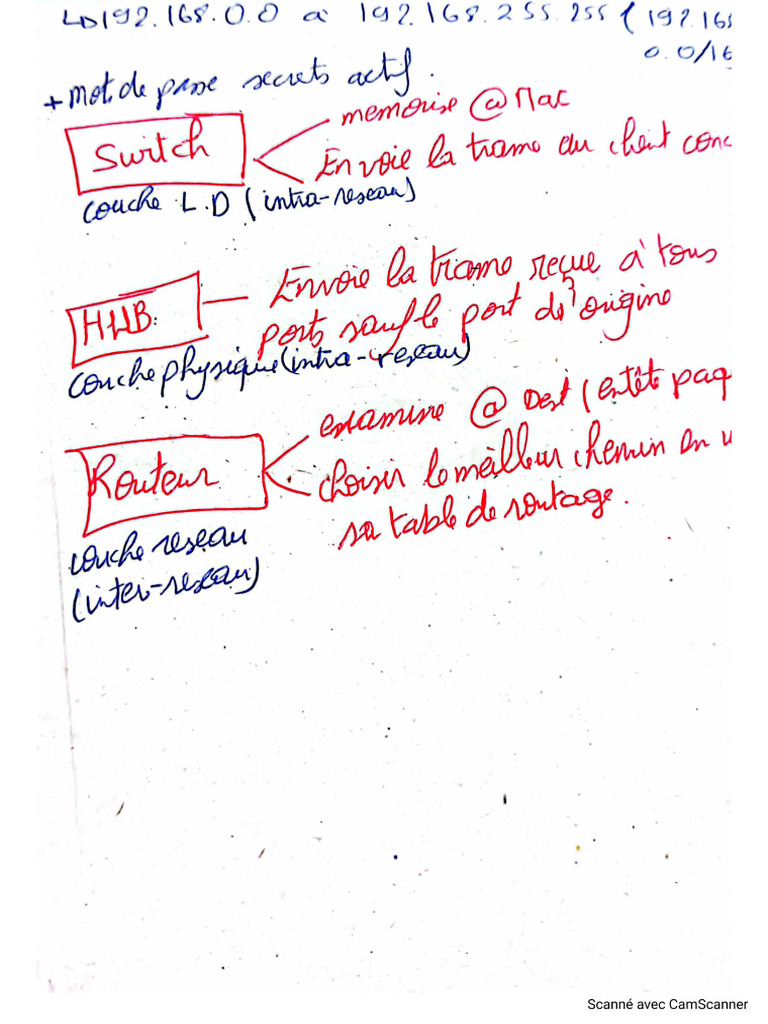 ↳192.168.0.0 à 192.168.255.255 (192.168
0.0/16
+ mot de passe secrets actif.
Switch
memorise @ Mac
Envoie la trame au client conc
couche L.D (intra-reseau)
HUB:
Envoie la trame reçue à tous
ports sauf le port d'origine
couche physique (intra-reseau)
Routeur
examine @ Dest (entête paq
choisir le meilleur chemin en u
sa table de routage.
couche reseau
(inter-reseau)
Scanné avec CamScanner